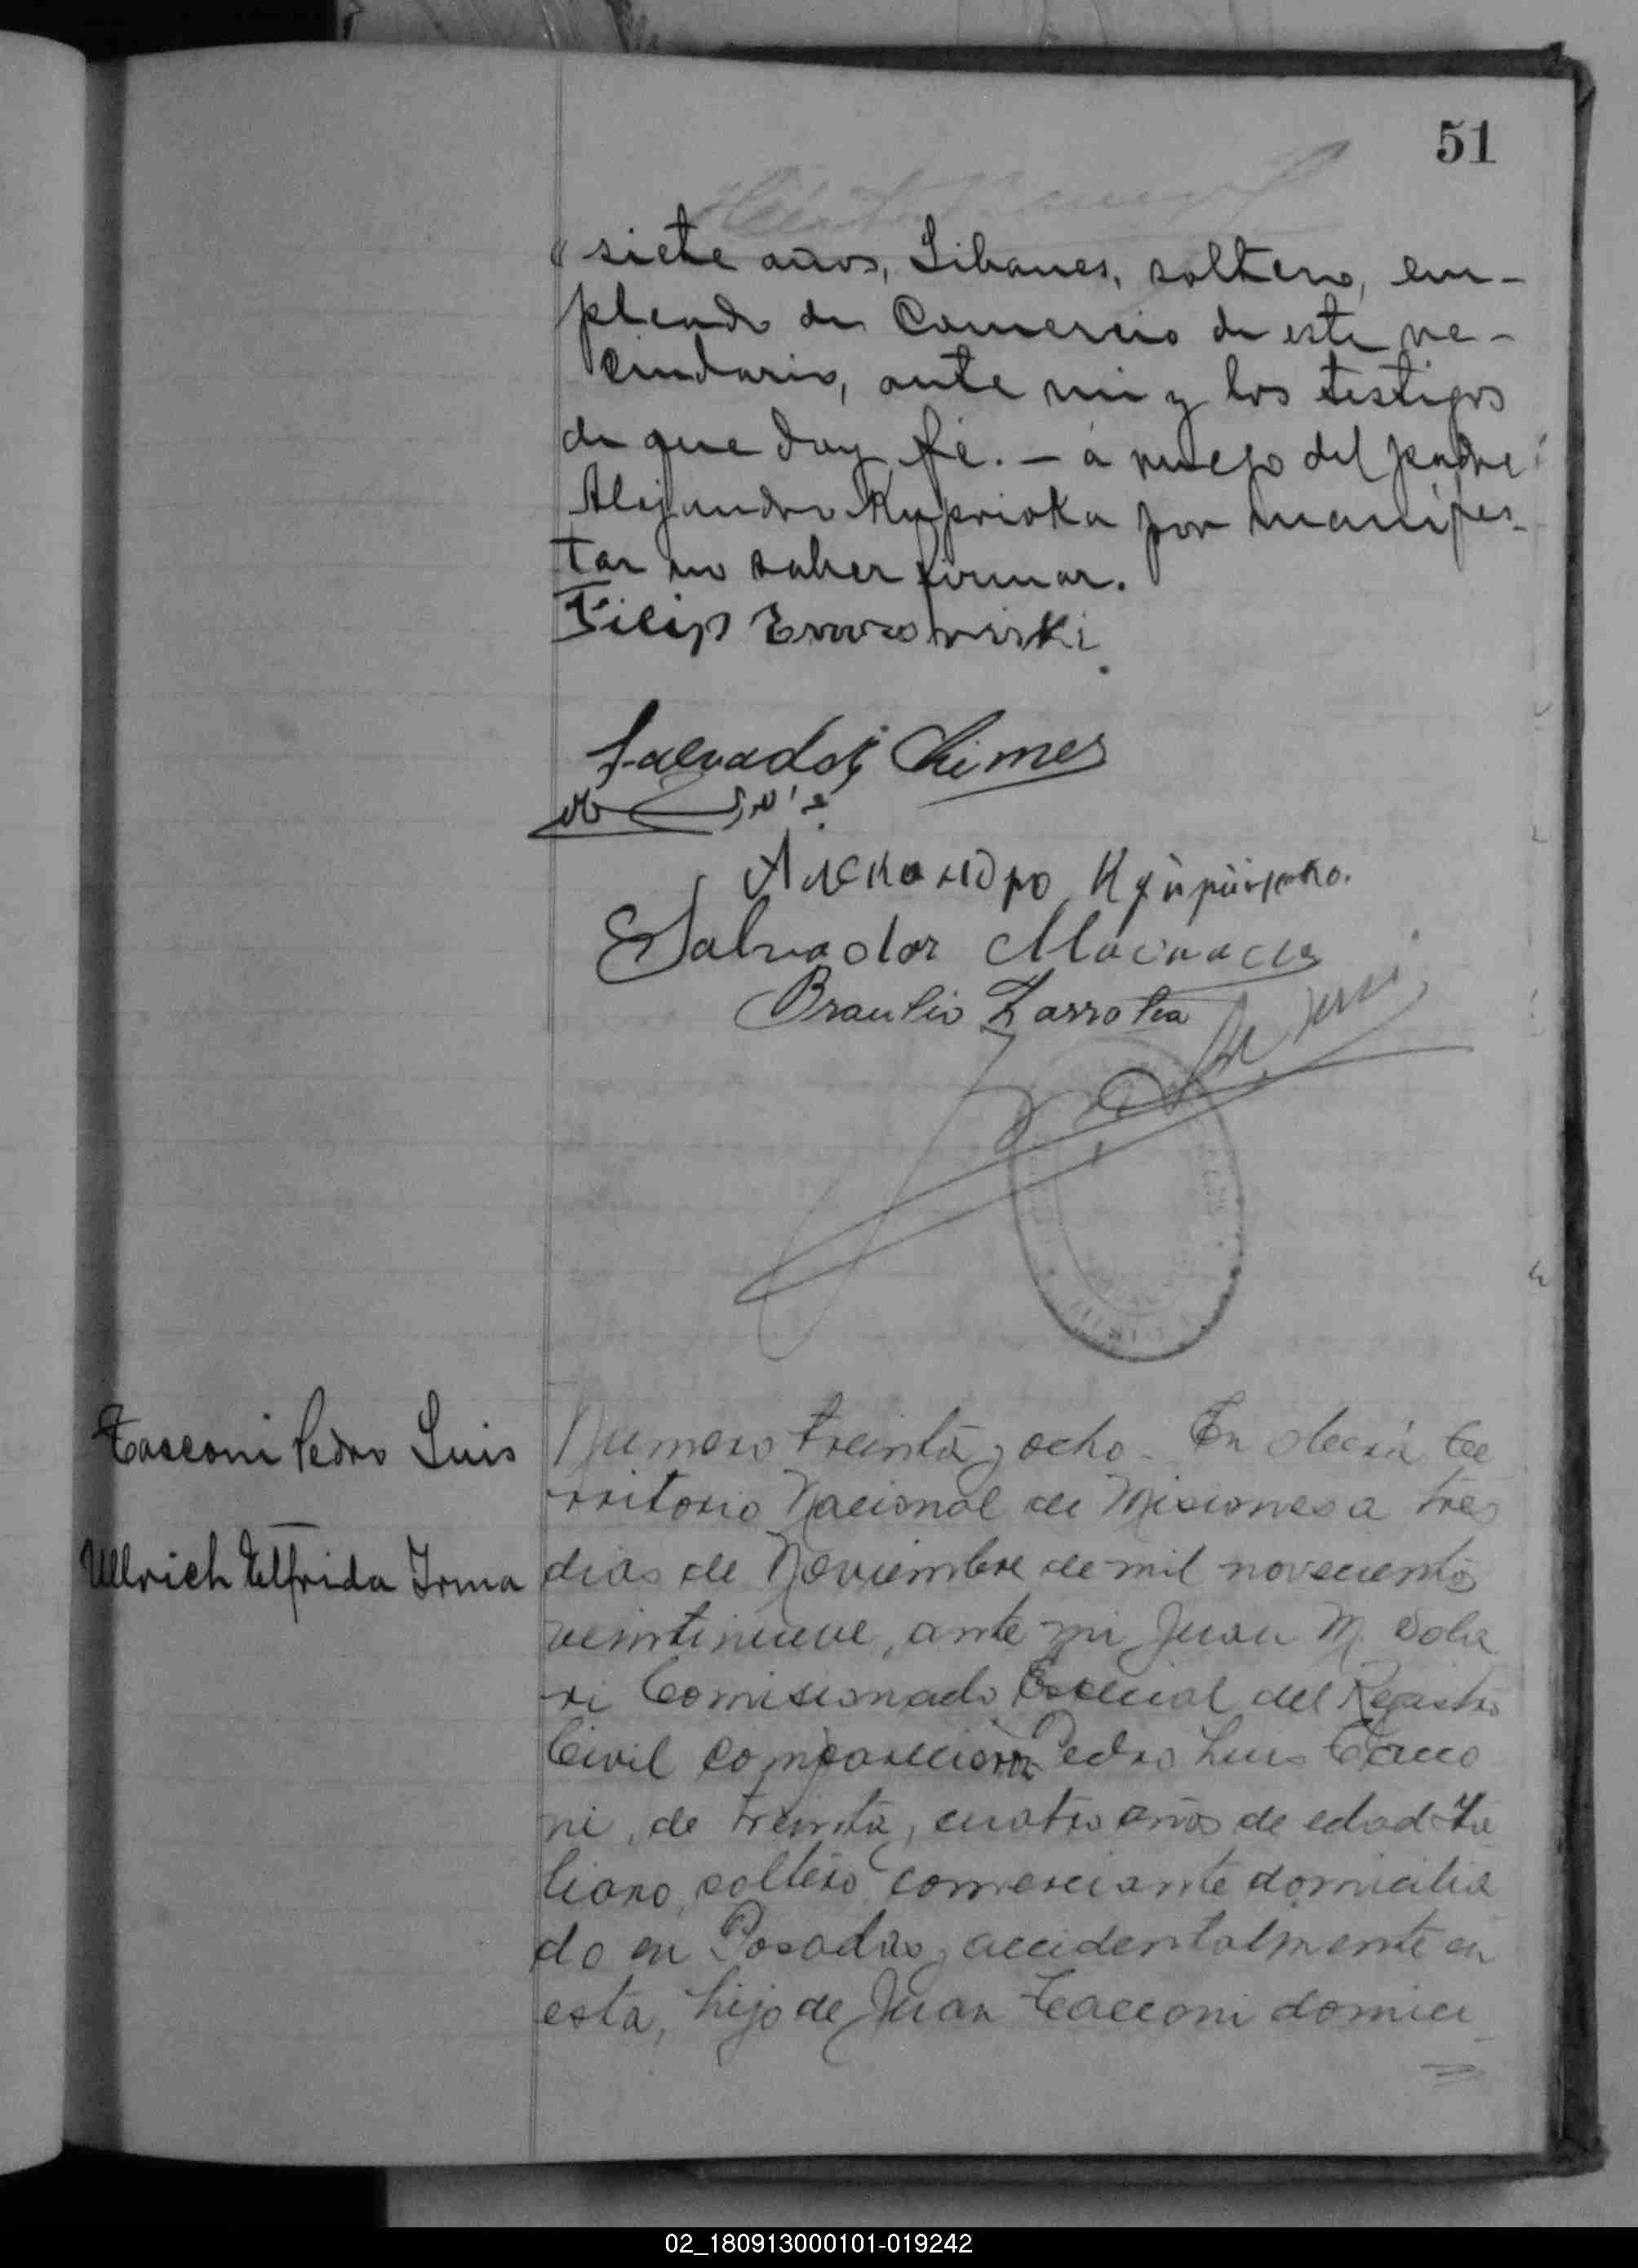 51
" siete años, Libanes, soltero, em-
pleado de Comercio de este ve-
cindario, ante mi y los testigos
de que doy fé. - á ruego del padre
Alejandro Kuprioka por manifes-
tar no saber firmar.
Filip
Salvador Chimes
Александро
Salvador
Braulio Zarrotea
Tacconi Pedro Luis
Numero treinta y ocho - En Oberá te
rritorio Nacional de Misiones a tres
Ullrich Elfrida Irma
dias de Noviembre de mil novecientos
veintinueve, ante mi Juan M. Sola
ri Comisionado Especial del Registro
Civil comparecieron Pedro Luis Tacco
ni, de treinta y cuatro años de edad Ita
liano, soltero comerciante domicilia
do en Posadas y accidentalmente en
esta, hijo de Juan Tacconi domici
02_180913000101-019242